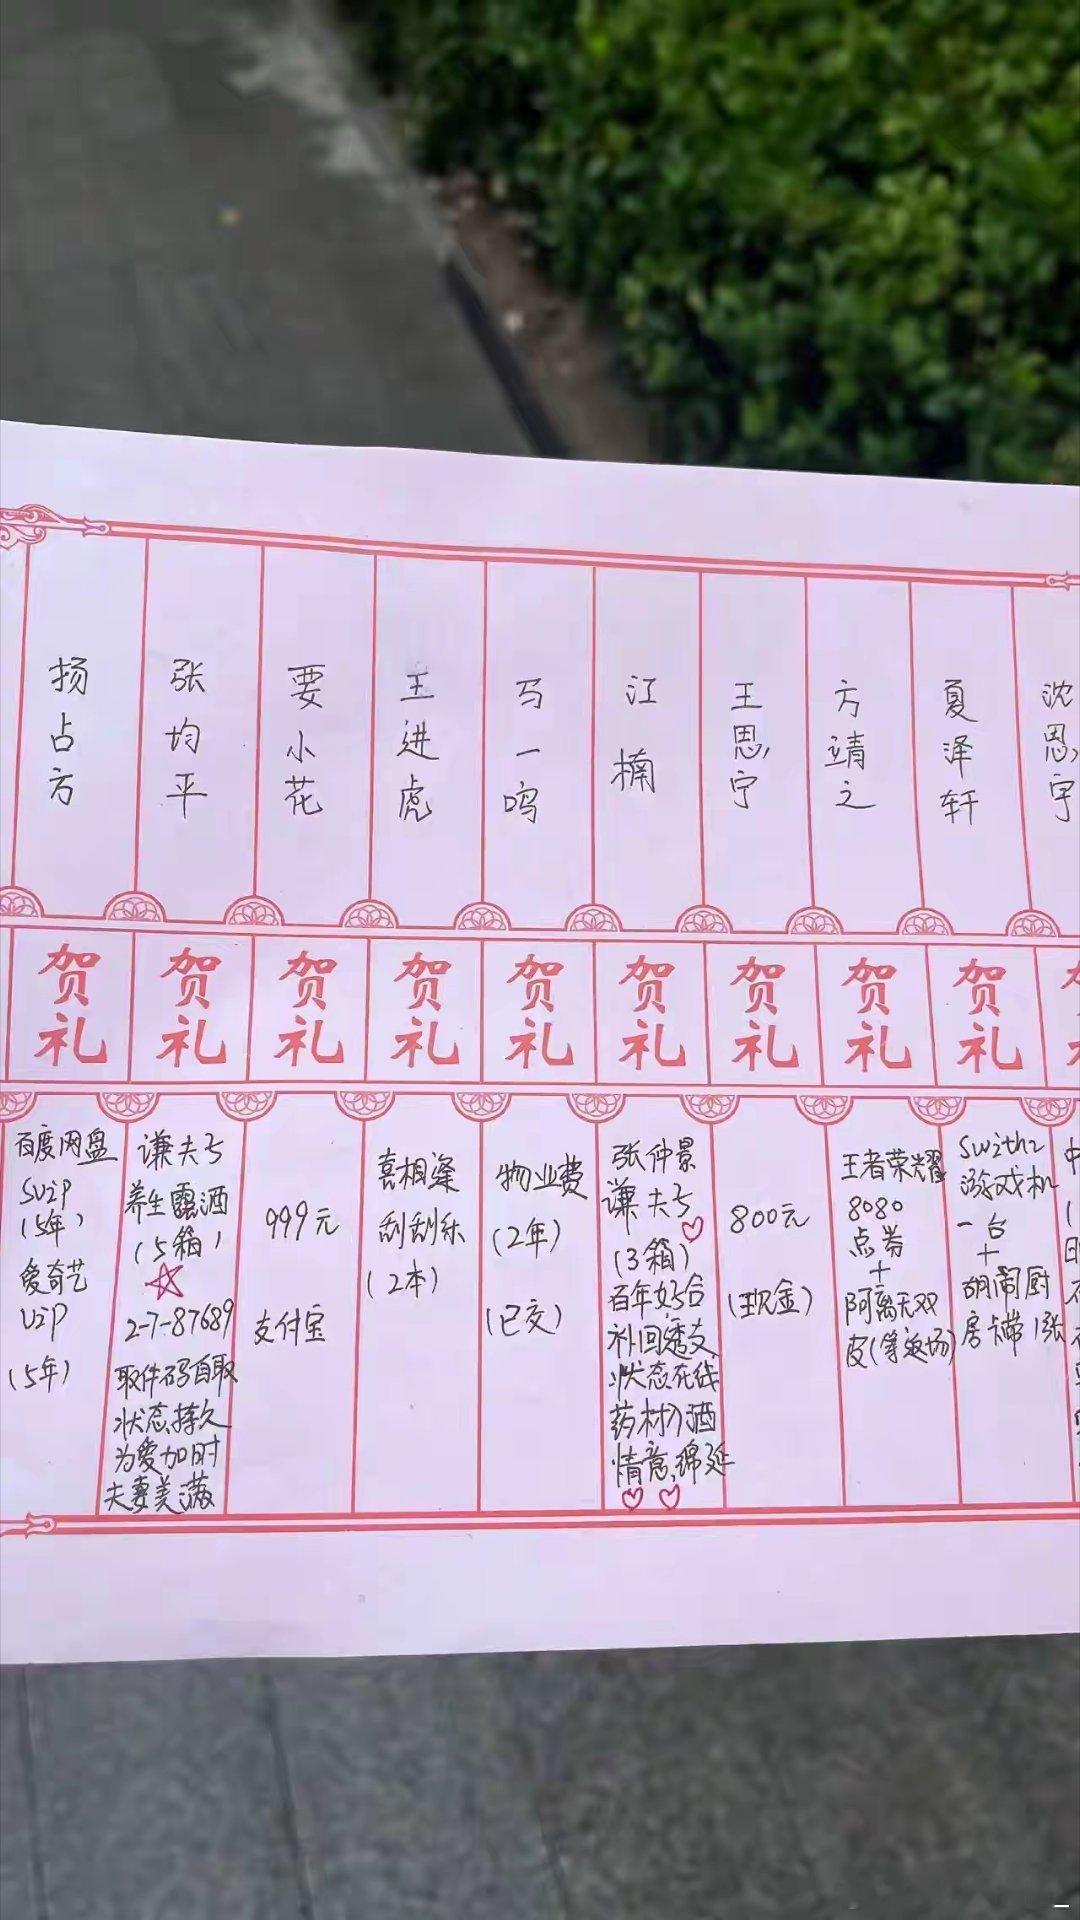 扬占方
张均平
要小花
王进虎
马一鸣
江楠
王思宁
方靖之
夏泽轩
沈思宇
贺礼
贺礼
贺礼
贺礼
贺礼
贺礼
贺礼
贺礼
贺礼
百度网盘
SVIP
(5年)
爱奇艺
VIP
(5年)
谦夫号
养生露酒
(5箱)
2-7-87689
取件码自取
状态持久
为爱加时
夫妻美满
999元
支付宝
喜相逢
刮刮乐
(2本)
物业费
(2年)
(已交)
张仲景
谦夫号
(3箱)
百年好合
补回透支
状态在线
药材入酒
情意绵延
800元
(现金)
王者荣耀
8080
点券
+
阿离无双
皮(等返场)
Switch2
游戏机
一台
+
胡闹厨
房卡带1张